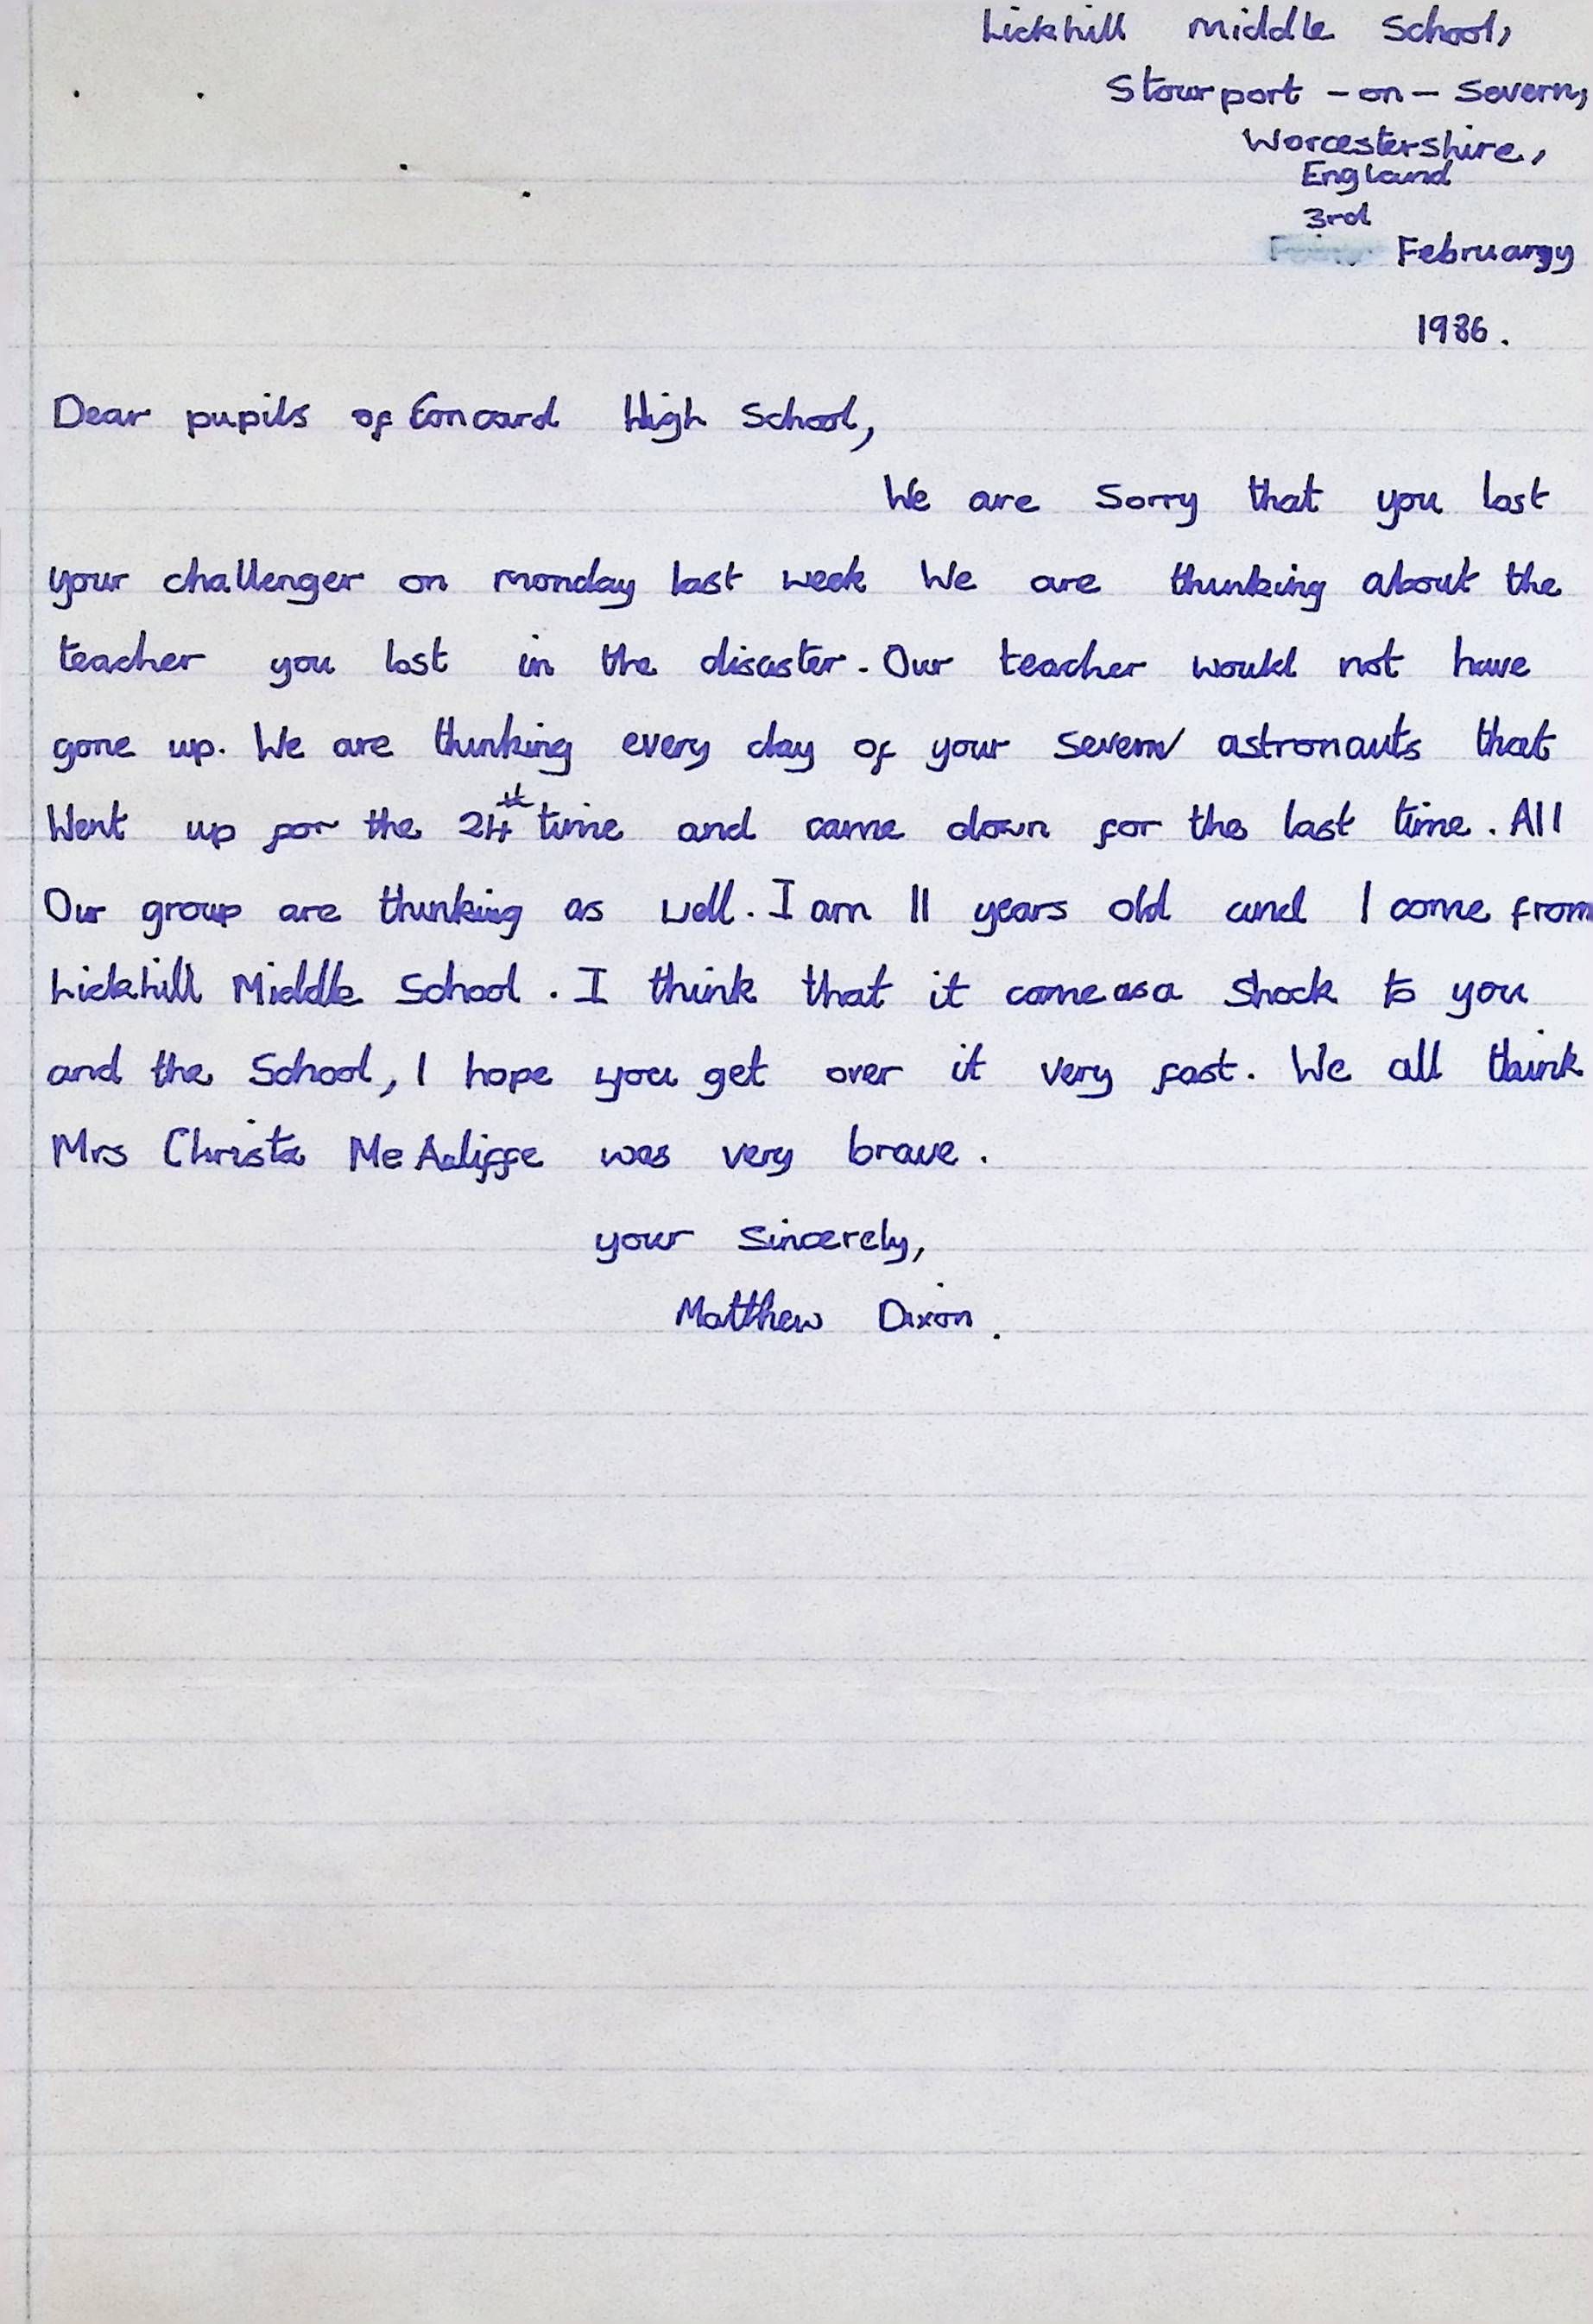 Lickhill Middle School,
Stourport - on - Severn,
Worcestershire,
England
3rd
February
1986.
Dear pupils of Concord High School,
We are Sorry that you lost
your challenger on monday last week We are thinking about the
teacher you lost in the disaster. Our teacher would not have
gone up. We are thinking every day of your seven astronauts that
Went up for the 24th time and came down for the last time. All
Our group are thinking as well. I am 11 years old and I come from
Lickhill Middle School. I think that it came as a Shock to you
and the School, I hope you get over it very fast. We all think
Mrs Christa McAuliffe was very brave.
your Sincerely,
Matthew Dixon.